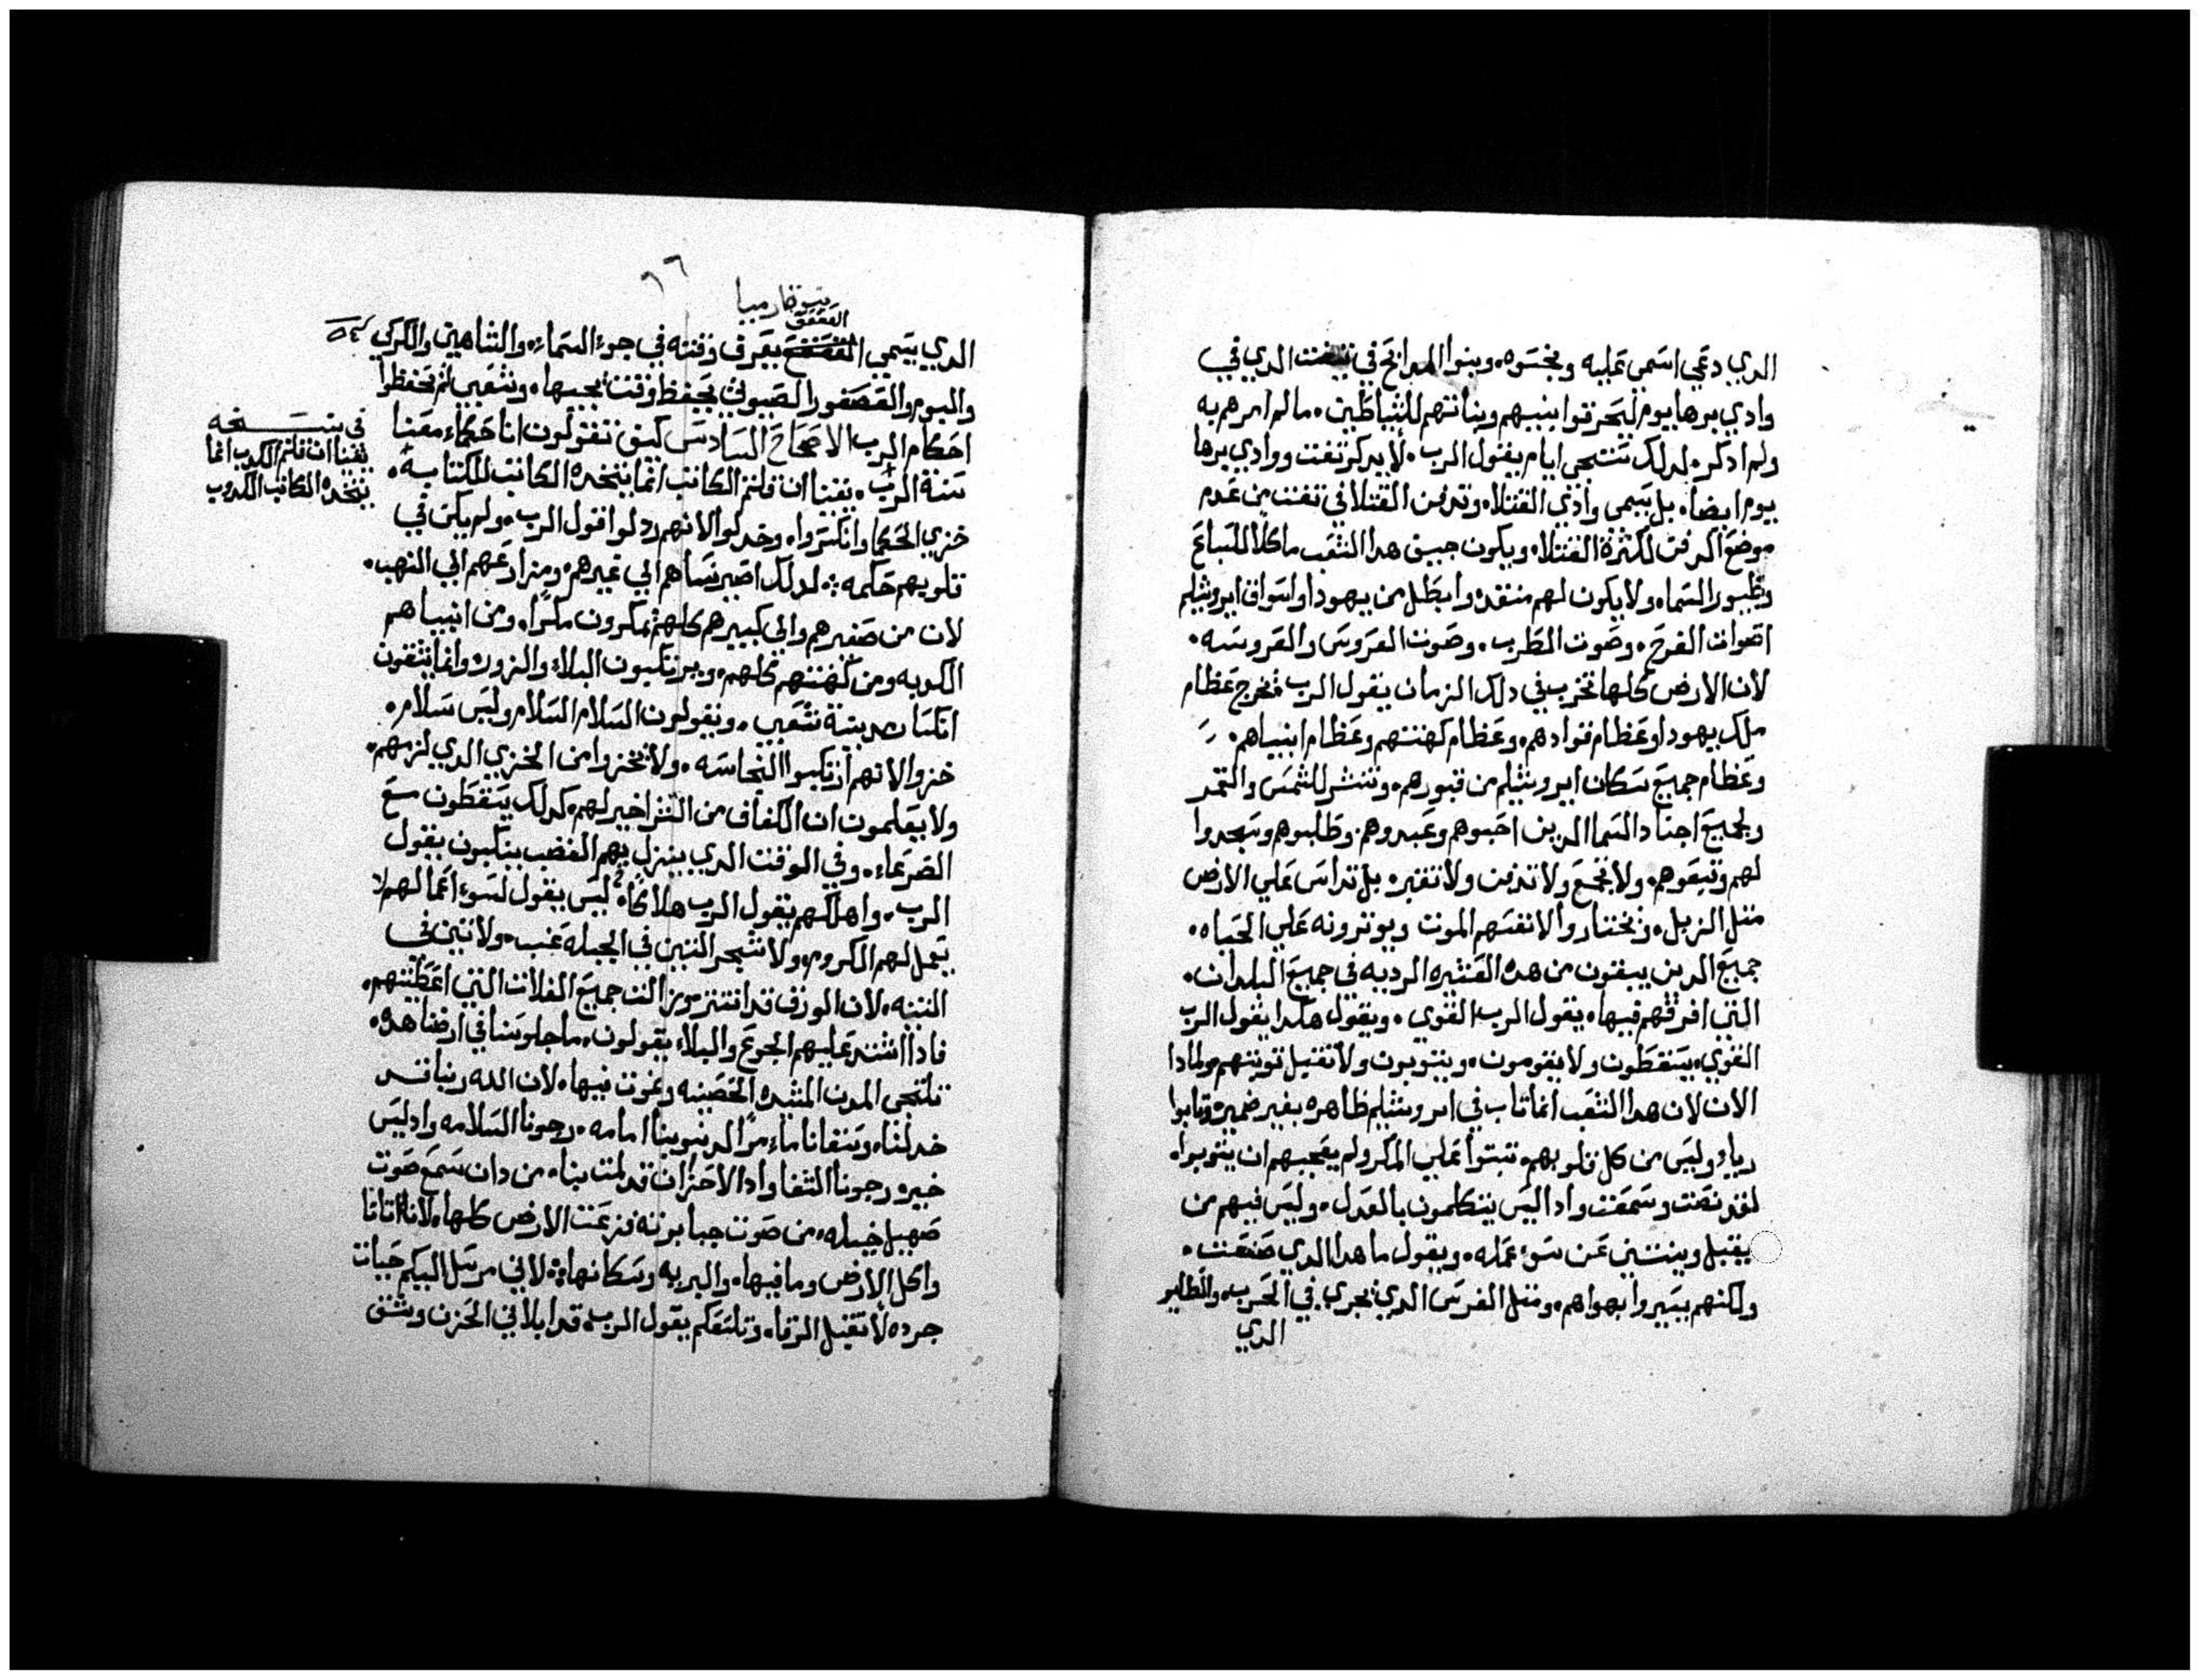 الدي دعي اسمي عليه ونجسوه وبنوا المدابح في تفت الدي في
وادي برهايوم ليحرقوا بنيهم وبناتهم للشياطين ، مالم امرهم به
ولم ادكره لدلك ستجي ايام يقول الرب ، لا يدكر تفت ووادي برها
يوم ايضا ، بل يسمى وادي القتلاه وتدفن القتلا في تفت من عدم
موضع الدفن لكثرة القتلاه ويكون جيف هدا الشعب ماكلا للسباع
وطيور السماه ولا يكون لهم منقده وابطل من يهودا واسواق ايروشليم
اصوات الفرح ، وصوت الطرب ، وصوت العروس والعروسه ،
لان الارض كلها تخرب في دلك الزمان يقول الرب فتخرج عظام
ملك يهودا وعظام قوادهم ، وعظام كهنتهم وعظام انبياهم ،
وعظام جميع سكان ايروشليم من قبورهم ، وتنشر للشمس والقمر
ولجميع اجناد السما الدين احبوهم وعبدوهم وطلبوهم وسجدوا
لهم وتبعوهم ، ولا تجمع ولا تدفن ولا تقبره بل تداس علي الارض
متل الزبل ، ويختاروا لانفسهم الموت ويوترونه علي الحياه ،
جميع الدين يبقون من هده العشيره الرديه في جميع البلدان ،
التي افرقهم فيها ، يقول الرب القوي ، ويقول هكدا يقول الرب
القوي ، يسقطون ولا يقومون ، ويتوبون ولا تقبل توبتهم ولمادا
الان لان هدا الشعب انما تاب في ايروشليم ظاهره بغير ضميره وتابوا
رياء وليس من كل قلوبهم ، تبتوا علي المكر ولم يعجبهم ان يتوبواه
لقد نصت وسمعت وادا ليس يتكلمون بالعدل ، وليس فيهم من
يقبل وينتني عن سوء عمله ، ويقول ما هدا الدي صنعت ،
ولكنهم يسيروا بهواهم ، ومتل الفرس الدي يجري في الحرب ، والطاير
الدي
٦٦
نبوة ارميا
العقعق
الدي يسمي يعرف وقته في جو السماء ، والشاهين والكركي
واليوم والعصفور الصبوني يحفظ وقت مجيبها ، وشعبي لم يحفظوا
احكام الرب الاصحاح السادس كيف تقولون انا حكماء معنا
سنة الرب ، يقينا ان قلتم الكاتب انما يتخده الكاتب للكتابه ،
في نسخه
يقينا ان قلتم الكدب انما
يتخده الكاتب الكدوب
خزي الحكما وانكسروا ، وخدلوا لانهم ردلوا قول الرب ، ولم يكن في
قلوبهم حكمه ، لدلك اصير نساهم الي غيرهم ، ومزارعهم الي النهب ،
لان من صغيرهم والي كبيرهم كلهم يمكرون مكرا ، ومن انبياهم
الكدبه ومن كهنتهم كلهم ، ويرتكبون البلاء والزور ، وانما يشفون
انكسار مدينة شعبي ، ويقولون السلام السلام وليس سلام ،
خزوا لانهم ارتكبوا النجاسه ، ولا يخزوا من الخزي الدي لزمهم ،
ولا يعلمون ان الكفاف من الشر اخير لهم ، كدلك يسقطون مع
الصرعاء ، وفي الوقت الدي ينزل بهم الغضب ينكبون يقول
الرب ، واهلكهم يقول الرب هلاكا ، ليس يقول لسوء اعمالهم لا
يعمل لهم الكروم ، ولا شجر التين في الجبله عنب ، ولا تين في
التينه ، لان الورق قد انتتر ويزالت جميع الغلات التي اعطيتهم ،
فادا اشتد عليهم الجوع والبلاء يقولون ، ما جلوسنا في ارضنا هده ،
نلتجي المدن المشيده الحصينه ونموت فيها ، لان الله ربنا قد
خدلنا ، وسقانا ماء مرا لدنوبنا امامه ، رجونا السلامه وادليس
خيره رجونا الشفا وادا الاحزان قد المت بنا ، من دان سمع صوت
صهيل خيله ، من صوت جبابرته فزعت الارض كلها ، لانه اتانا
واكل الارض وما فيها ، والبريه وسكانها ، لاني مرسل اليكم حيات
جرده لا تقبل الرقاه وتلسعكم يقول الرب ، قد ابلاني الحزن وشق